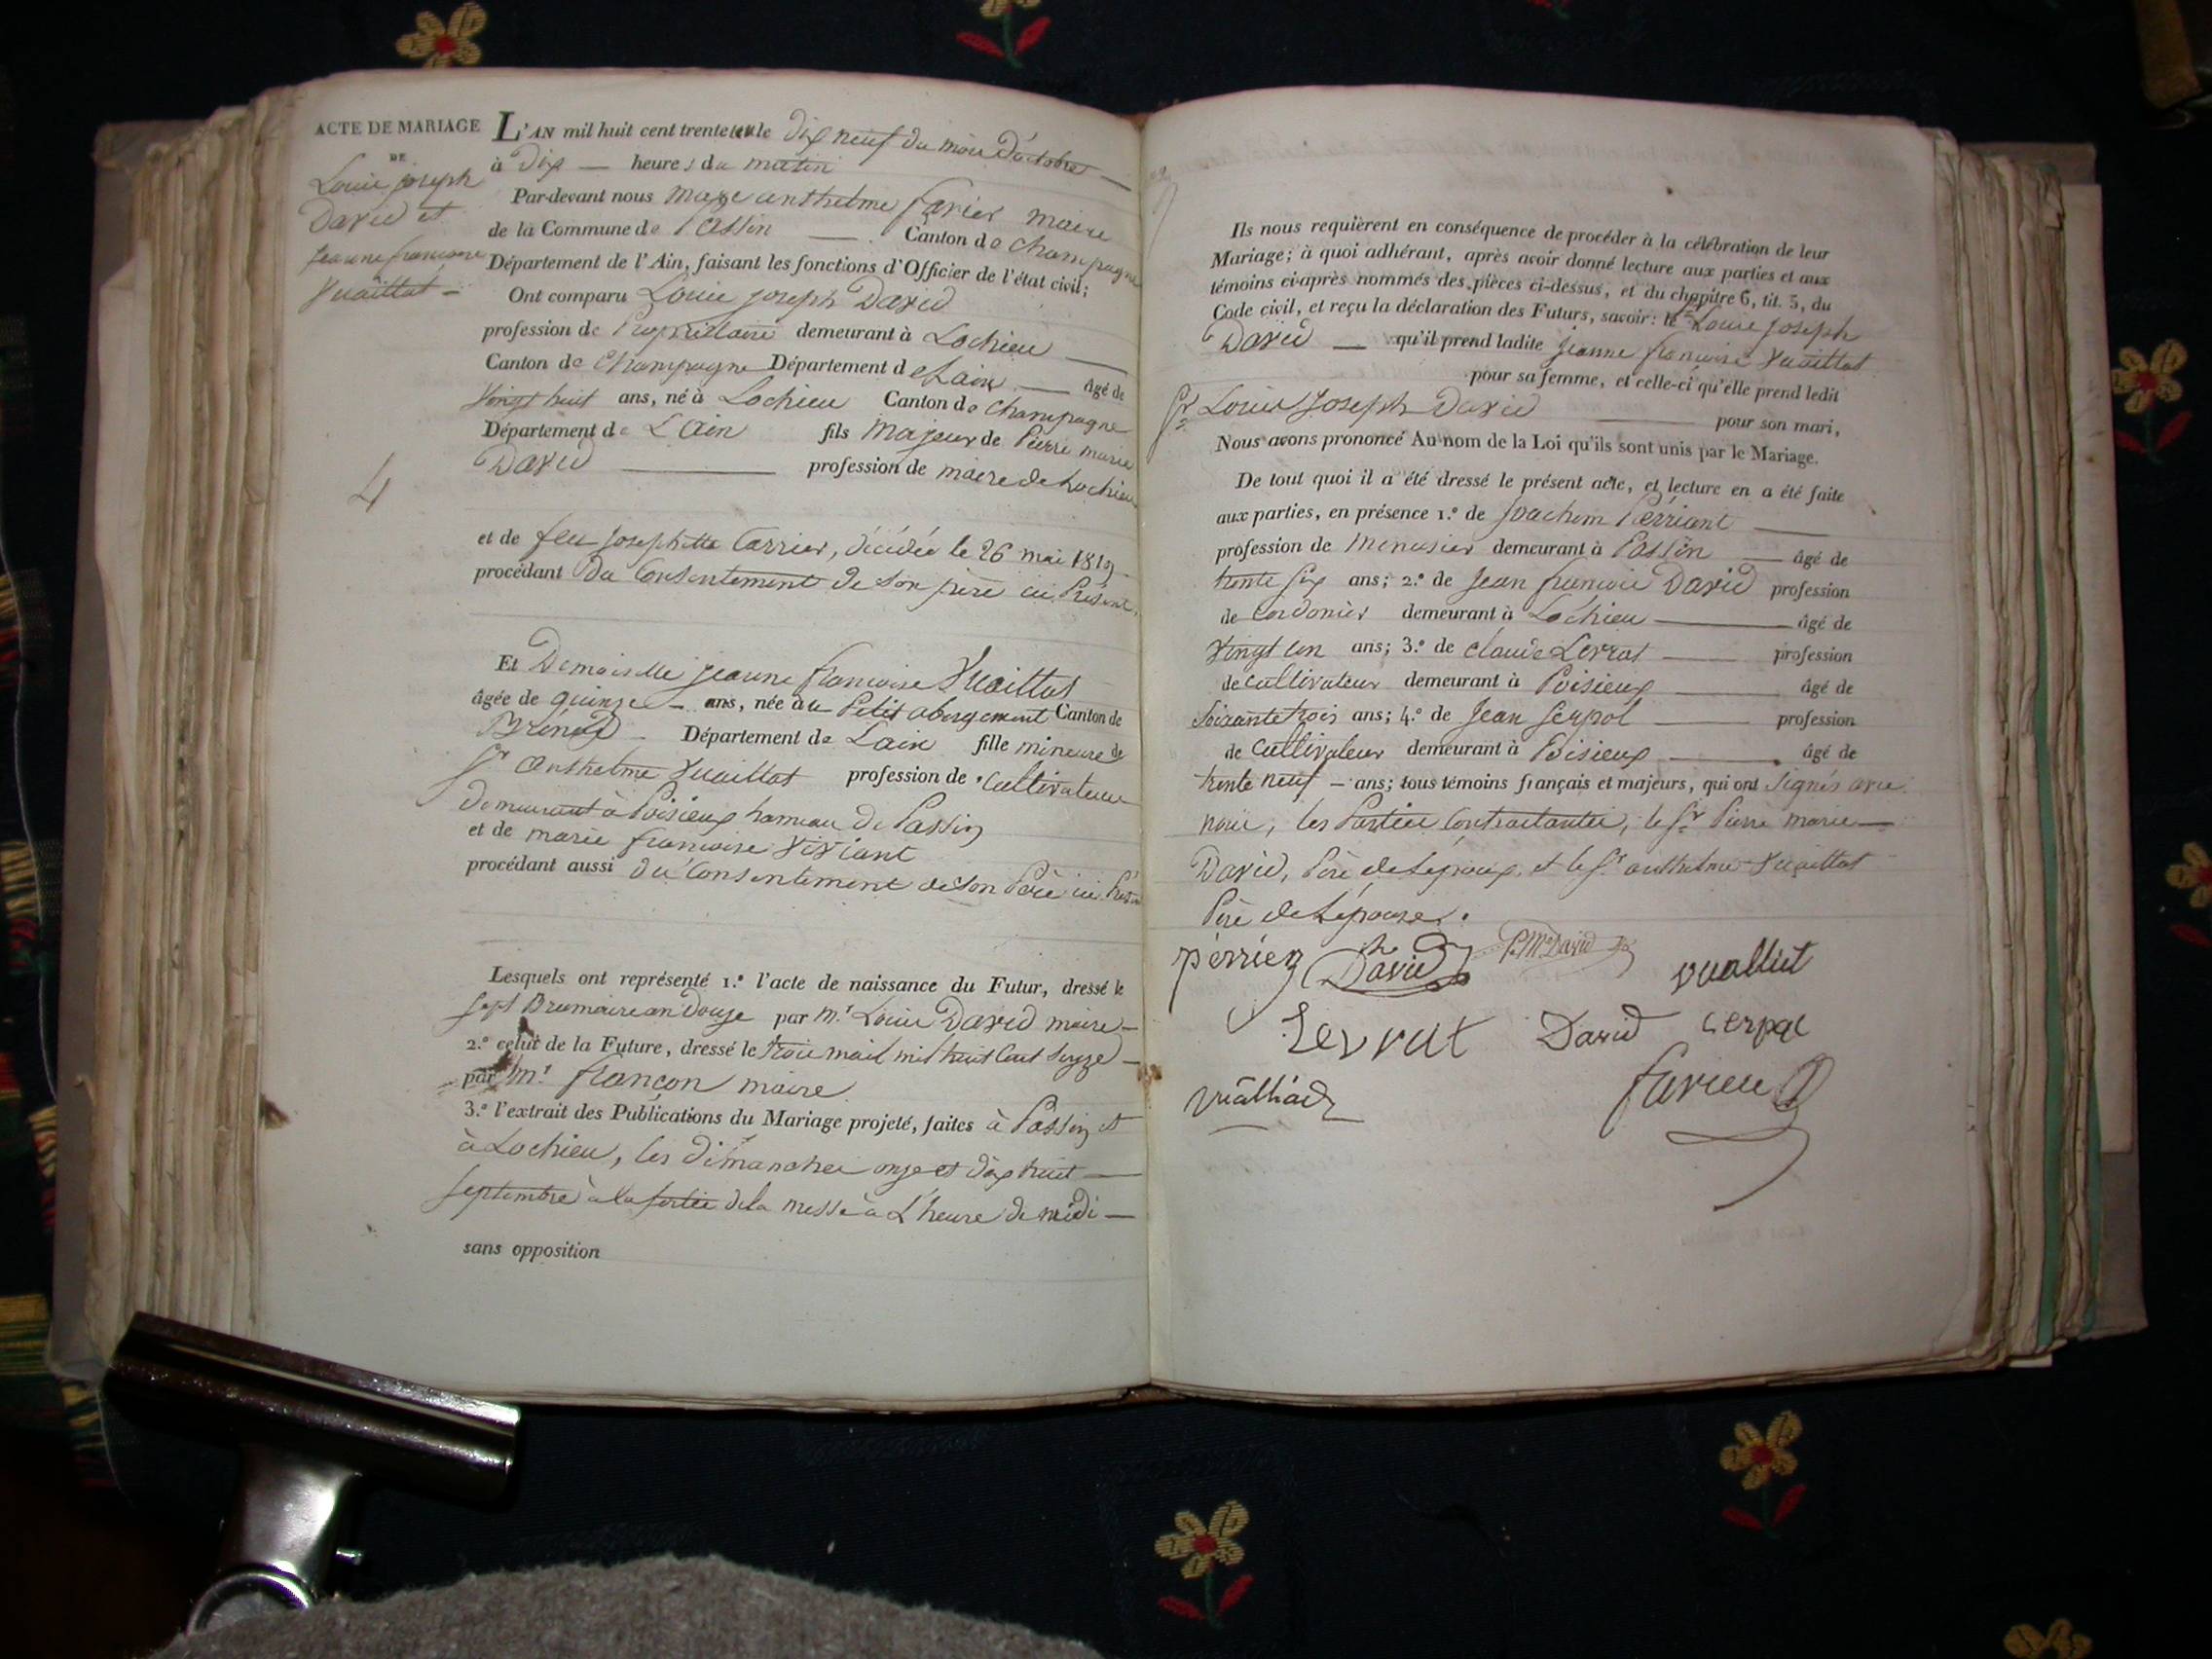 ACTE DE MARIAGE
DE
Louis joseph
David et
jeanne françoise
Vuaillat
4
L'AN mil huit cent trente un le dix neuf du mois d'octobre
à Dix heures du matin
Par-devant nous marc anthelme favier maire
de la Commune de Passin Canton de Champagne
Département de l'Ain, faisant les fonctions d'Officier de l'état civil;
Ont comparu Louis joseph David
profession de Propriétaire demeurant à Lochieu
Canton de Champagne Département de Lain âgé de
Vingt huit ans, né à Lochieu Canton de Champagne
Département de L'ain fils majeur de Pierre marie
David profession de maire de Lochieu
et de feu josephtte Carrier, décédée le 26 mai 1819
procédant du Consentement de son père ici Présent
Et Demoiselle jeanne françoise Vuaillat
âgée de quinze ans, née au Petit abergement Canton de
Brénod Département de Lain fille mineure de
Sr anthelme Vuaillat profession de cultivateur
demeurant à Poisieux hameau de Passin
et de marie françoise Viviant
procédant aussi du Consentement de son Père ici Présent
Lesquels ont représenté 1.º l'acte de naissance du Futur, dressé le
sept Brumaire an Douze par mr. Louis David maire
2.º celui de la Future, dressé le trois mail mil huit Cent seyze
par mr. françon maire
3.º l'extrait des Publications du Mariage projeté, faites à Passin et
à Lochieu, les Dimanches onze et dix huit
septembre à la sortie de la messe à L'heure de midi
sans opposition
Ils nous requièrent en conséquence de procéder à la célébration de leur
Mariage; à quoi adhérant, après avoir donné lecture aux parties et aux
témoins ci-après nommés des pièces ci-dessus, et du chapitre 6, tit. 5, du
Code civil, et reçu la déclaration des Futurs, savoir: le Sr Louis joseph
David qu'il prend ladite jeanne françoise Vuaillat
pour sa femme, et celle-ci qu'elle prend ledit
Sr Louis Joseph David pour son mari,
Nous avons prononcé Au nom de la Loi qu'ils sont unis par le Mariage.
De tout quoi il a été dressé le présent acte, et lecture en a été faite
aux parties, en présence 1.º de joachim Perriant
profession de menusier demeurant à Passin âgé de
trente six ans; 2.º de jean françois David profession
de Cordonier demeurant à Lochieu âgé de
Vingt un ans; 3.º de claude Levrat profession
de cultivateur demeurant à Poisieux âgé de
Soixante trois ans; 4.º de jean Serpol profession
de cultivateur demeurant à Poisieux âgé de
trente neuf ans; tous témoins français et majeurs, qui ont signés avec
nous, les Parties Contractantes, le Sr Pierre marie
David, Père de Lépoux, et le Sr anthelme Vuaillat
Père de Lépouse.
perrien David P. Me David vualliat
Levrat David Cerpol
vuâlliad favier